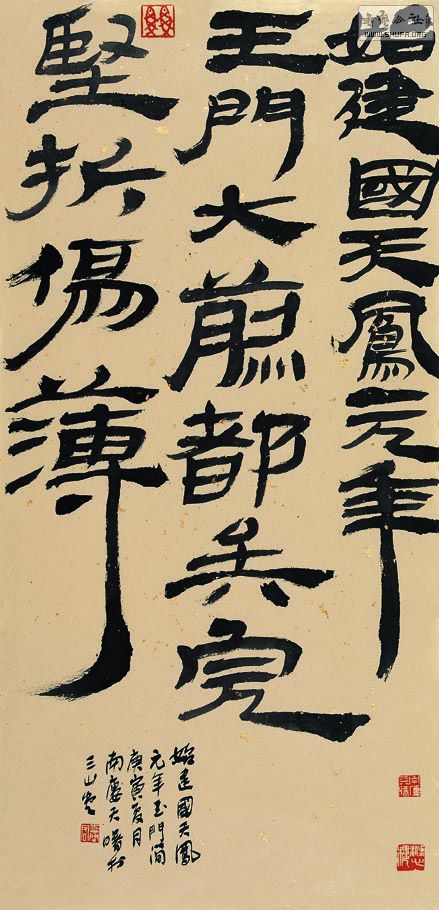 始建國天鳳元年
玉門大煎都兵完
堅折傷薄
始建國天鳳
元年玉門簡
庚寅夏月
南天
三山
WWW.SHUFA.ORG